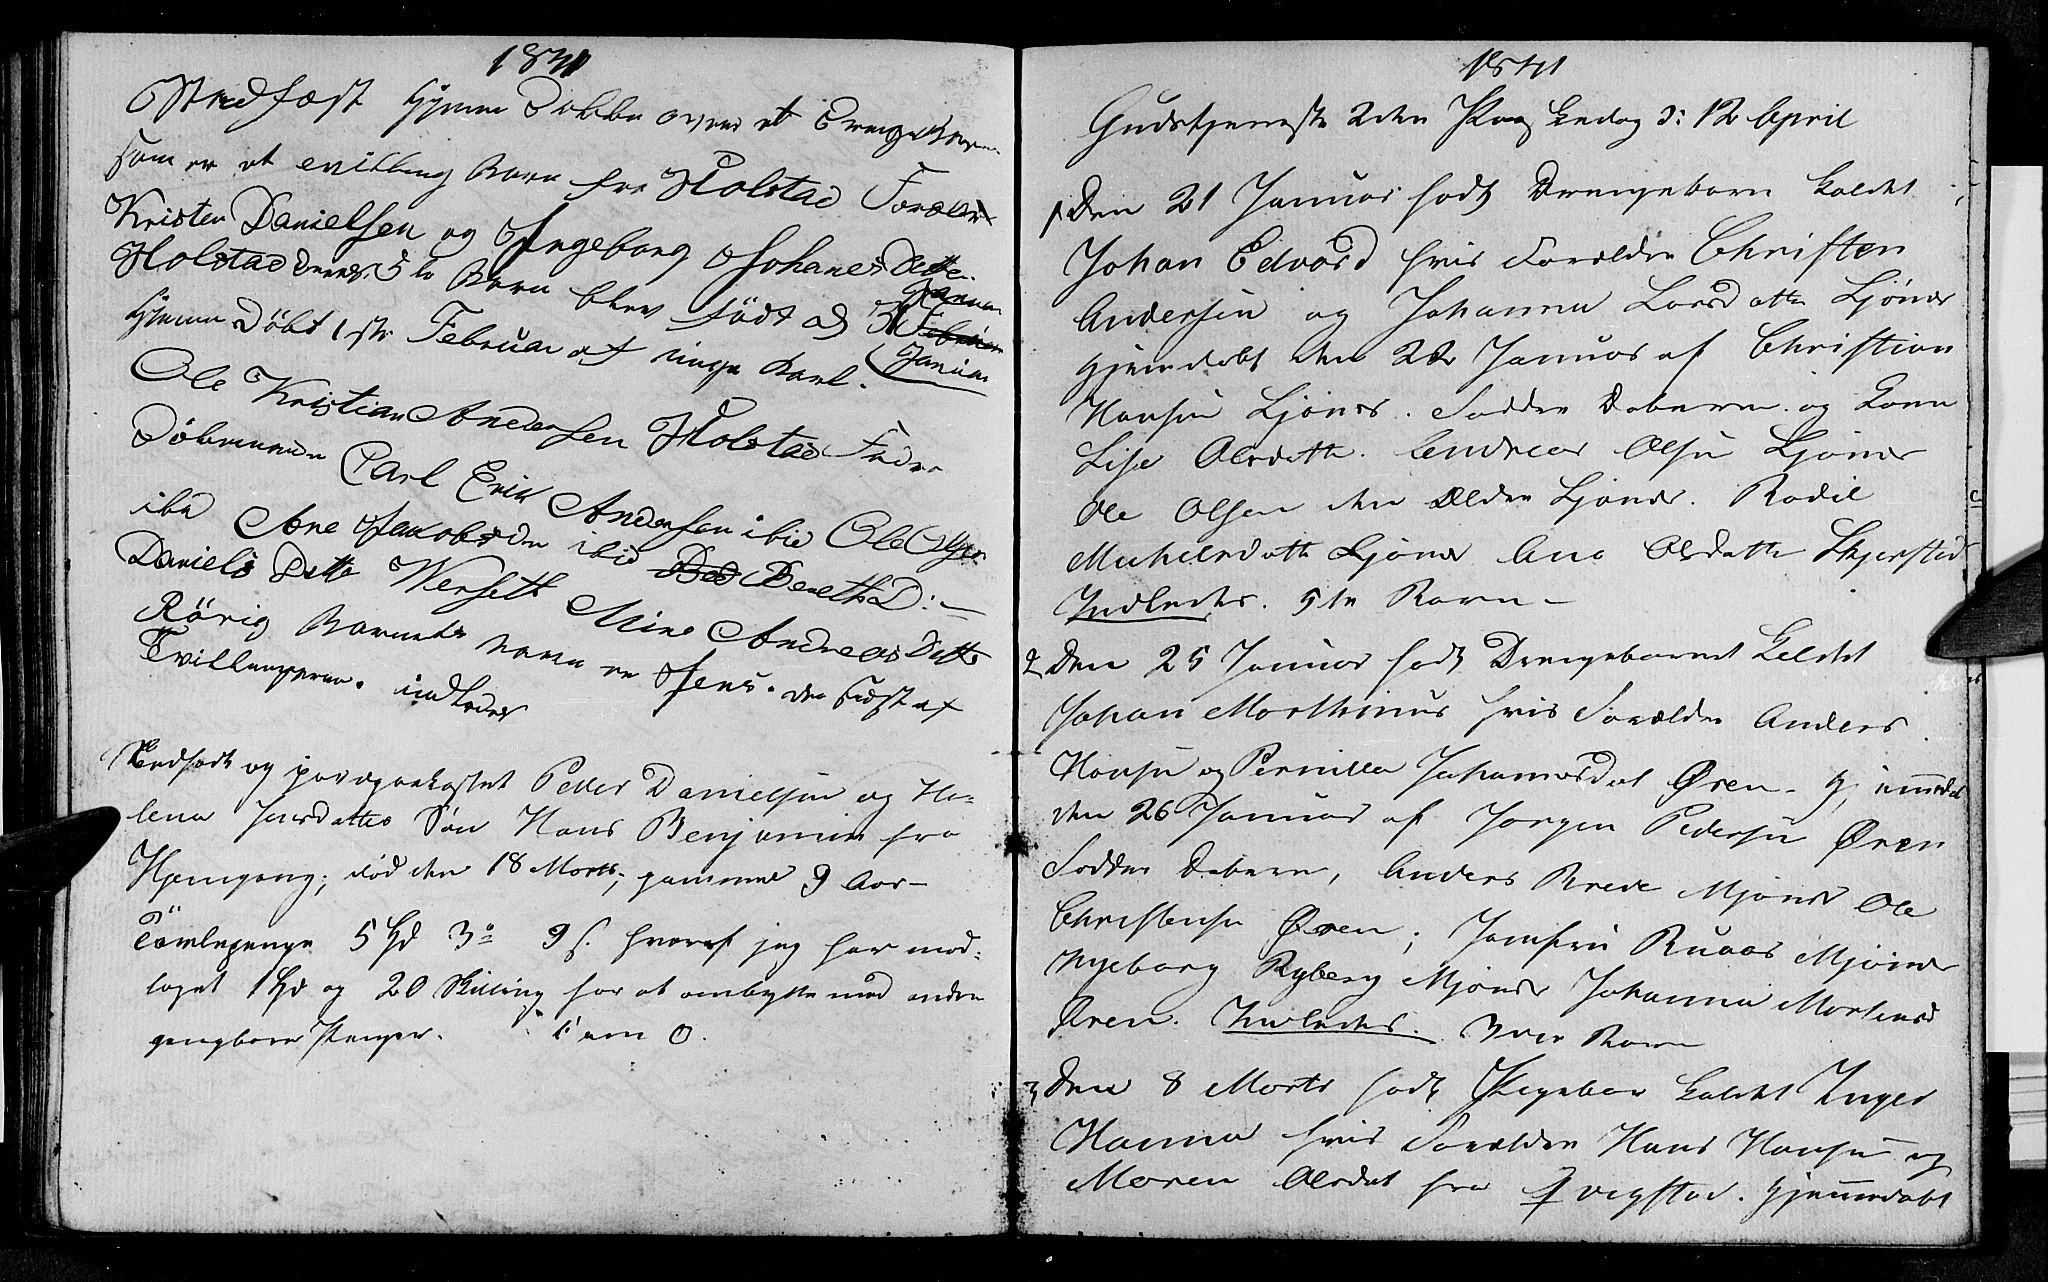 1841
Stadfæst Hjemme Daaben over et Drengebarn
som er et tvilling Barn fra Holstad Foræld
Kristen Danielsen og Ingeborg Johanes Datte
Holstad deres 5te Barn blev født d 31 Januar
Hjemme Döbt 1ste Februar af unge Karl.
Januar
Ole Kristian Andersen Holstad Fadre
Döbmanden Carl Erik Andersen ibid Ole Olsen
ibd Ane Jakobsd ibid Bereth D:
Daniels Datte Werseth Mine Andreas Datte
Rörig Barnets navn er Jens. den sidst af
Tvillingerne. indledes
Jordfæstet Peder Danielsen og He-
lena Jensdatters Søn Hans Benjamin fra
Hjemgang; død den 18 Marts, gammel 9 Aar-
Tavlepenge 5 3 9 s. hvoraf jeg har mod-
taget 1 og 20 Skilling for at ombytte med andre
gangbare Penge.
1841
Gudstjeneste 2den Paaskedag d: 12 April
1 Den 21 Januar født Drengebarn kaldet
Johan Edvard hvis Forældre Christen
Andersen og Johanna Larsdatte Ljönes
hjemdøbt den 22 Januar af Christian
Hansen Ljönes. Fadder Døberen og Kone
Lise Olsdatte. Andreas Olsen Ljönes
Ole Olsen den Ældre Ljönes. Bodil
Michelsdatte Ljönes Ane Olsdatte Skjerstad
Indledes. 5te Barn -
2 Den 25 Januar født Drengebarnet kaldet
Johan Marthinus hvis Forældre Anders
Hansen og Pernille Johannesdat Øren. hjemmedøbt
den 26 Januar af Jørgen Pedersen Øren
Fadder Døberen, Anders Brede Mjönes Ole
Christensen Øren; Jomfru Ruaas Mjönes
Ingeborg Ryberg Mjönes Johanna Mortensd
Øren. Indledes. 3die Barn
3 Den 8 Marts født Pigebarn kaldet Inger
Hanna hvis Forældre Hans Hansen og
Maren Olsdat fra Tvegstad. hjemmedøbt